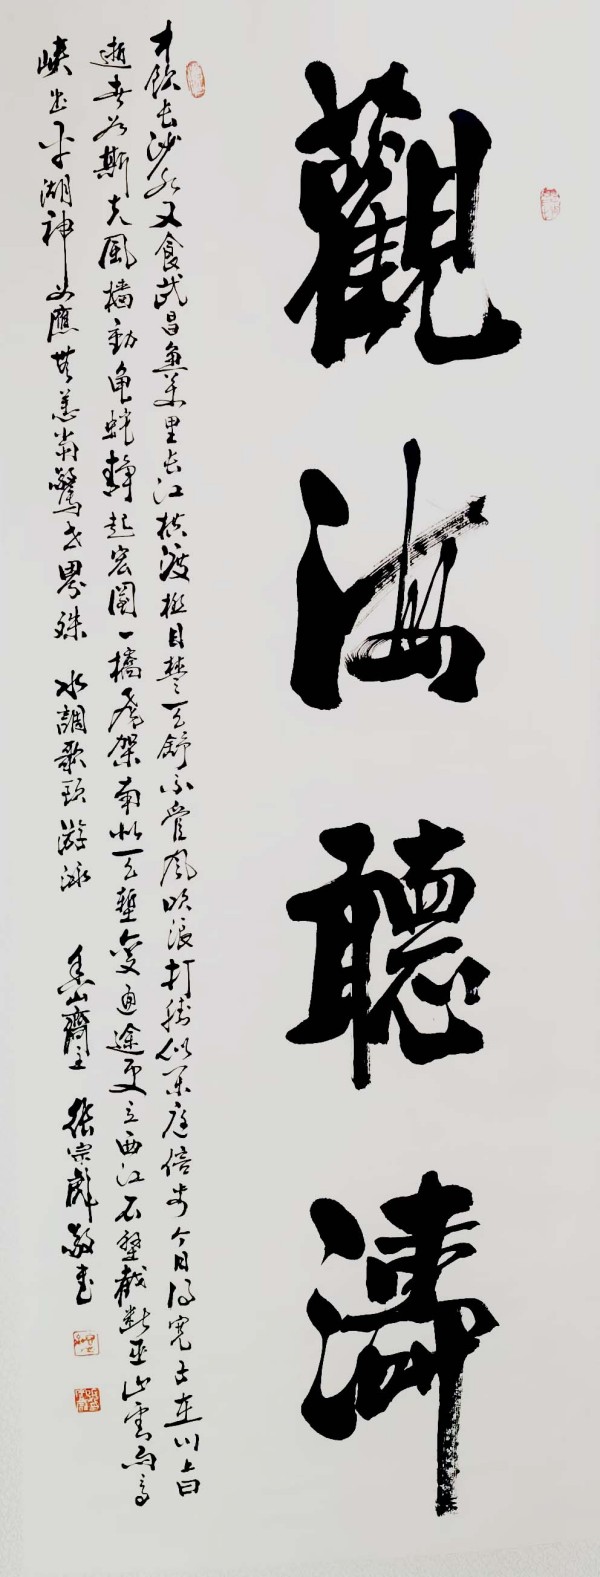 觀海聽濤
才飲長沙水又食武昌魚萬里長江橫渡極目楚天舒不管風吹浪打勝似閑庭信步今日得寬余子在川上曰
逝者如斯夫風檣動龜蛇靜起宏圖一橋飛架南北天塹變通途更立西江石壁截斷巫山雲雨高
峽出平湖神女應無恙當驚世界殊 水調歌頭 游泳 泰山齋主 張宗彪敬書